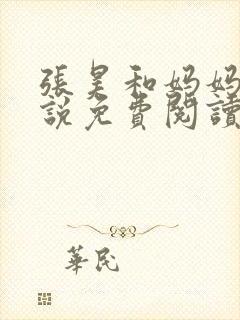 張昊和妈妈
說免費閱讀
華民